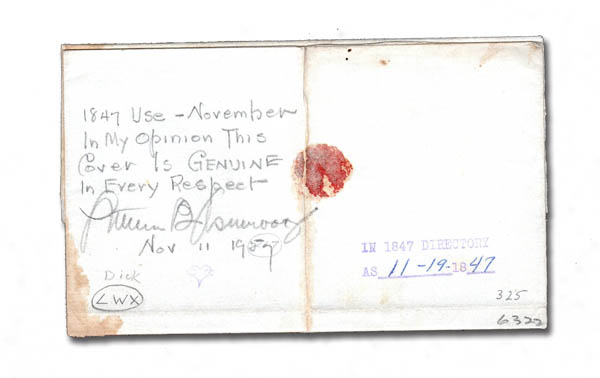 1847 Use - November
In My Opinion This
Cover Is GENUINE
In Every Respect
Nov 11 1957
Dick
LWX
IN 1847 DIRECTORY
AS 11-19-1847
325
6322